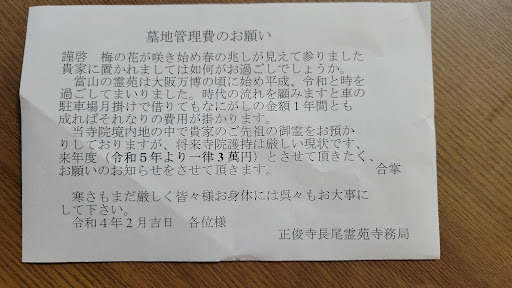 墓地管理費のお願い
謹啓　梅の花が咲き始め春の兆しが見えて参りました
貴家に置かれましては如何がお過ごしでしょうか。
　當山の霊苑は大阪万博の頃に始め平成、令和と時を
過ごしてまいりました。時代の流れを顧みますと車の
駐車場月掛けで借りてもなにがしの金額1年間とも
成ればそれなりの費用が掛かります。
　当寺院境内地の中で貴家のご先祖の御霊をお預か
りしておりますが、将来寺院護持は厳しい現状です、
来年度（令和５年より一律３萬円）とさせて頂きたく、
お願いのお知らせをさせて頂きます。　合掌
　寒さもまだ厳しく皆々様お身体には呉々もお大事に
して下さい。
　令和４年２月吉日　各位様
正俊寺長尾霊苑寺務局